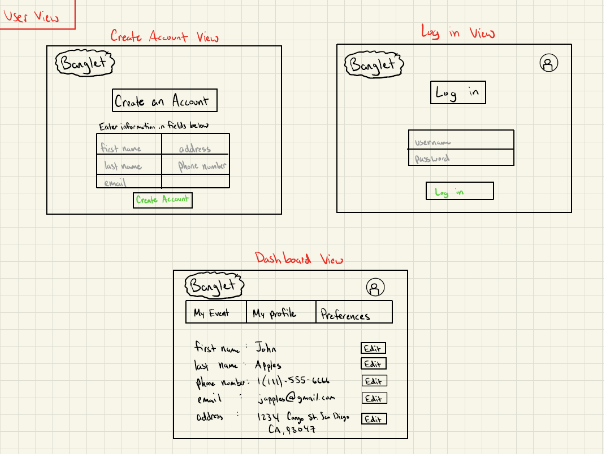 User View
Create Account View
Banglet
Create an Account
Enter information in fields below
first name address
last name phone number
email
Create Account
Log in View
Banglet
Log in
username
password
Log in
Dashboard View
Banglet
My Event My profile Preferences
first name : John Edit
last name : Apples Edit
phone number: 1(111)-555-6666 Edit
email : japples@gmail.com Edit
address : 1234 St. San Diego Edit
CA, 93047